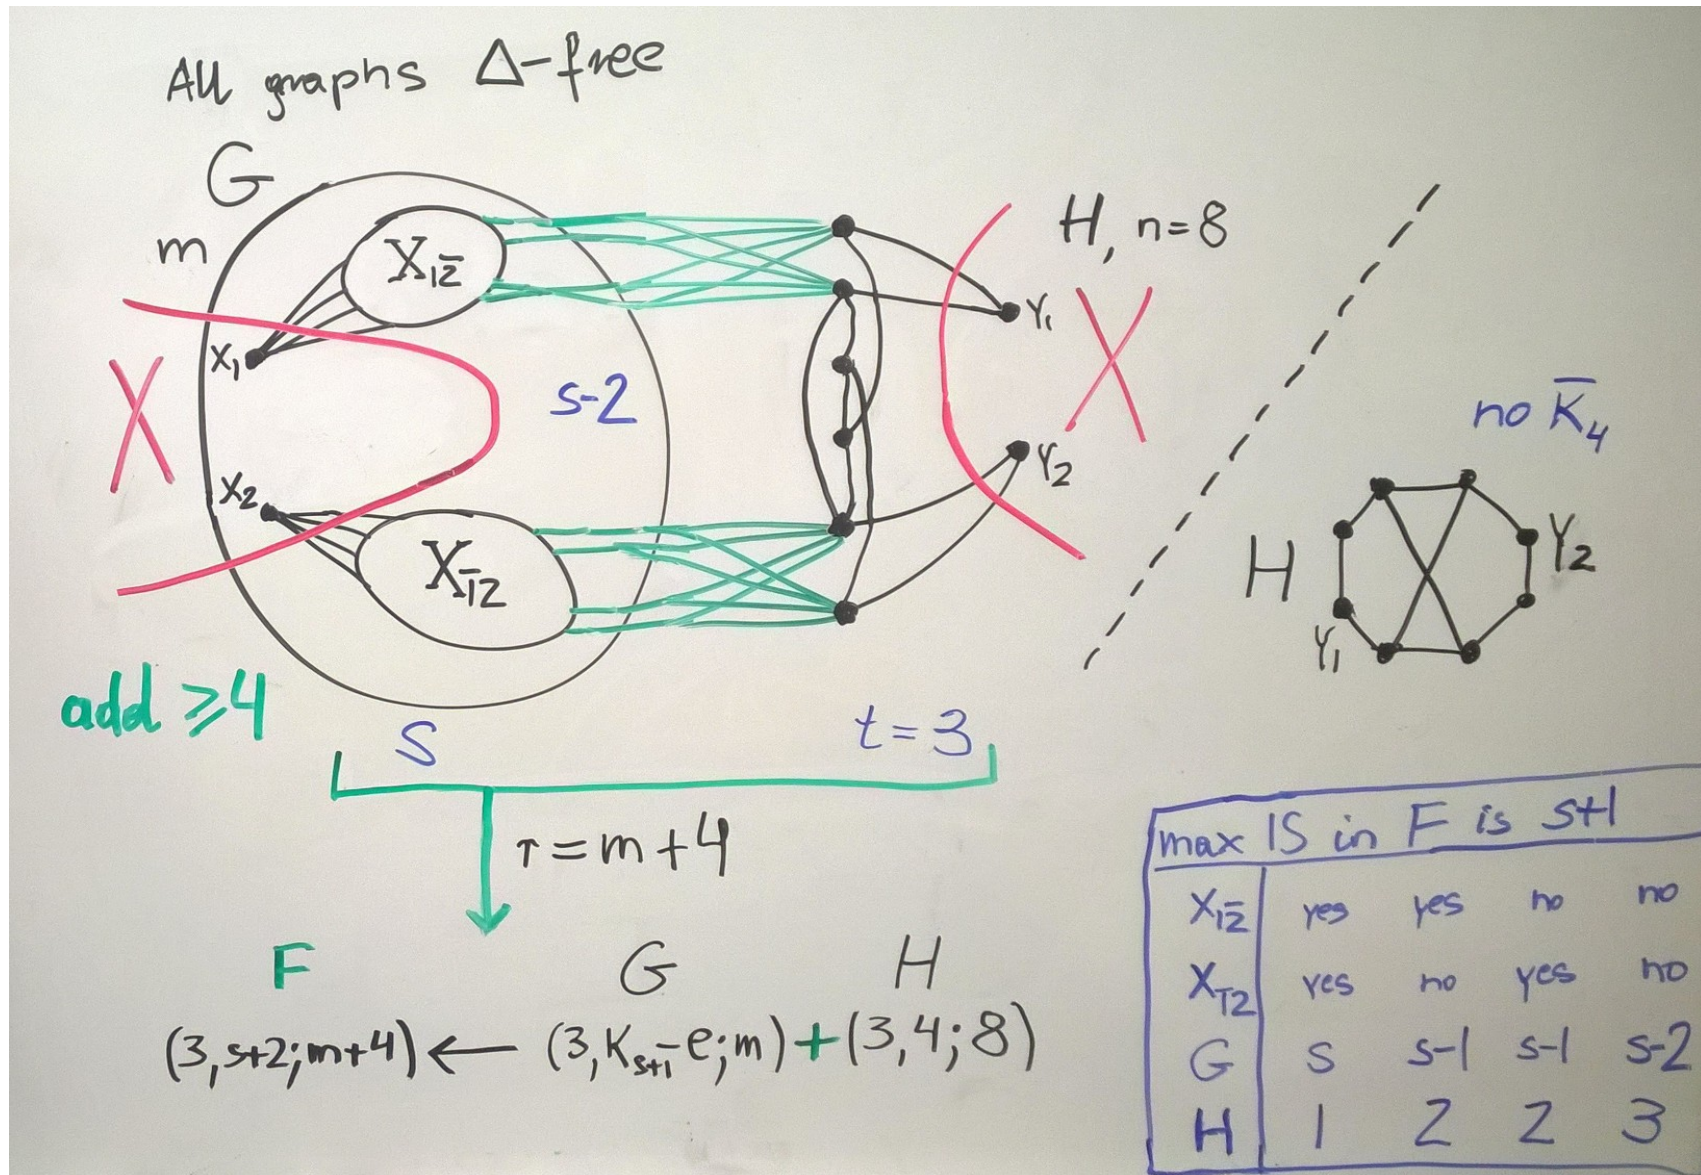 All graphs Δ-free
G
m
X₁₂̄
x₁
X
s-2
x₂
X₁̄₂
add ≥4
S
t=3
H, n=8
Y₁
X
Y₂
no K̄₄
H
Y₂
Y₁
↑=m+4
F G H
(3,s+2;m+4) ← (3,Kₛ₊₁-e;m)+(3,4;8)
max IS in F is s+1
X₁₂̄ yes yes no no
X₁̄₂ yes no yes no
G s s-1 s-1 s-2
H 1 2 2 3